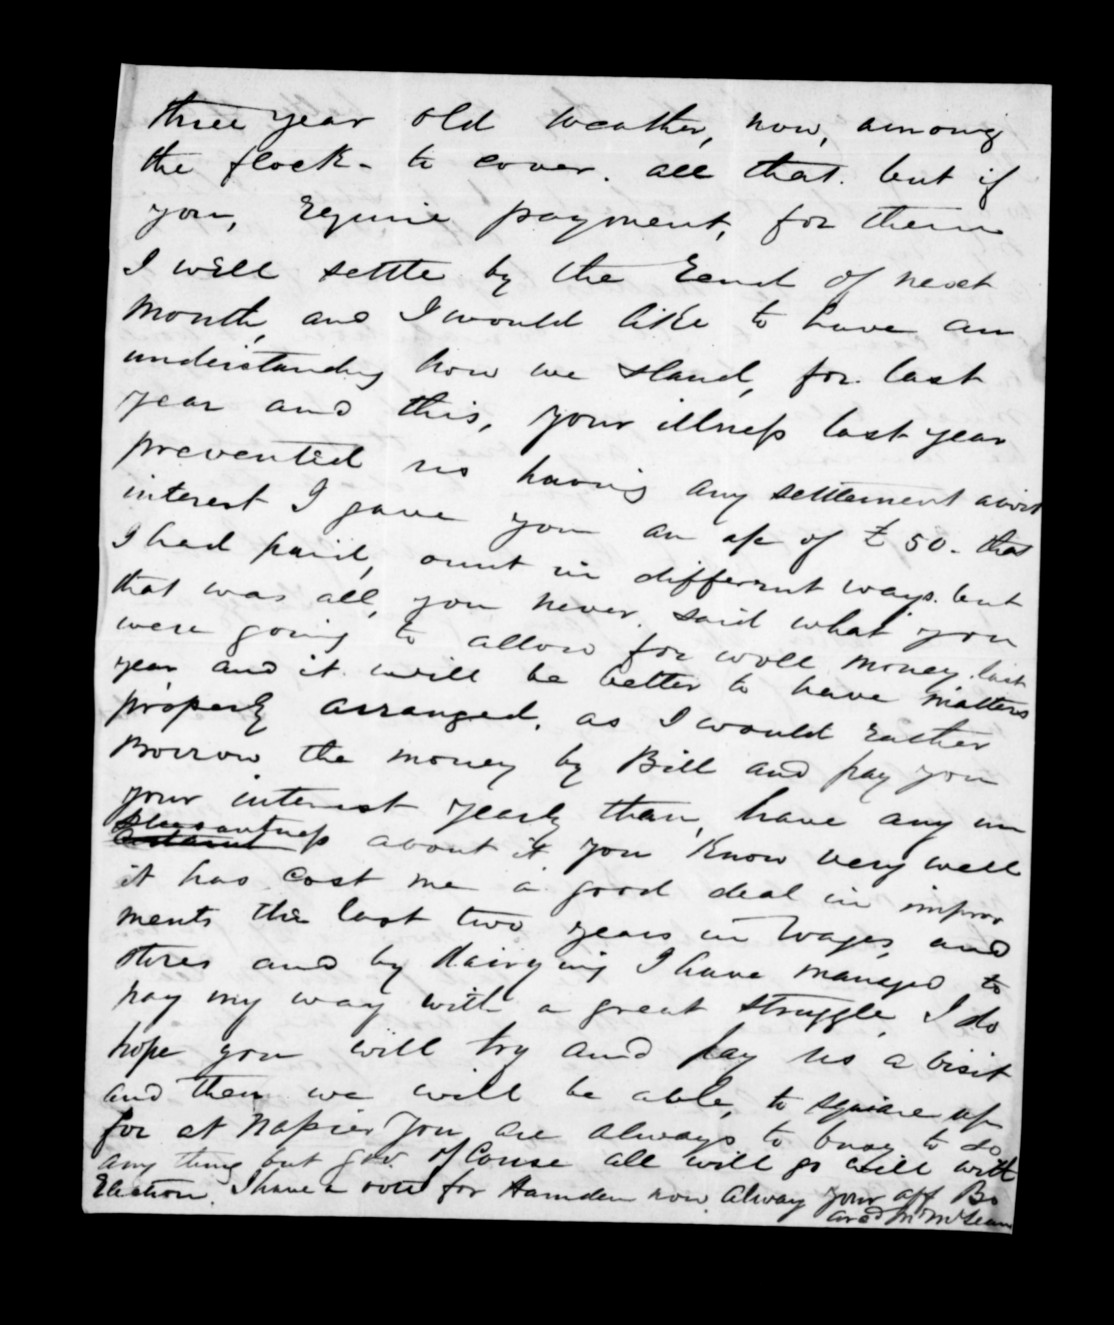 three year old weather, now, among
the flock - to cover. all that. but if
you, Equire payment, for them
I will settle by the Eend of next
Month, and I would like to have an
understanding how we stand, for last
year and this, your illness last year
prevented us having any settlement abot
interest I gave you an a/c of £50 - that
I had paid, ount in different ways. but
that was all, you never. said what you
were going to allow for wooll money last
year and it will be better to have matters
properly arranged, as I would Eather
Borrow the money by Bill and pay you
your interest yearly than, have any un
pleasantness about it you Know very well
it has cost me a good deal in improv
ments the last two years in Wages, and
stores and by dairying I have managed to
pay my way with a great struggle, I do
hope you will try and pay us a visit
and then we will be able, to square up
for at Napier you are always to busy to do
any thing but Gov. Of Couse all will go will with
Election. I have a vote for Hamden now. Alway your aff Br
Arcd Jn McLean